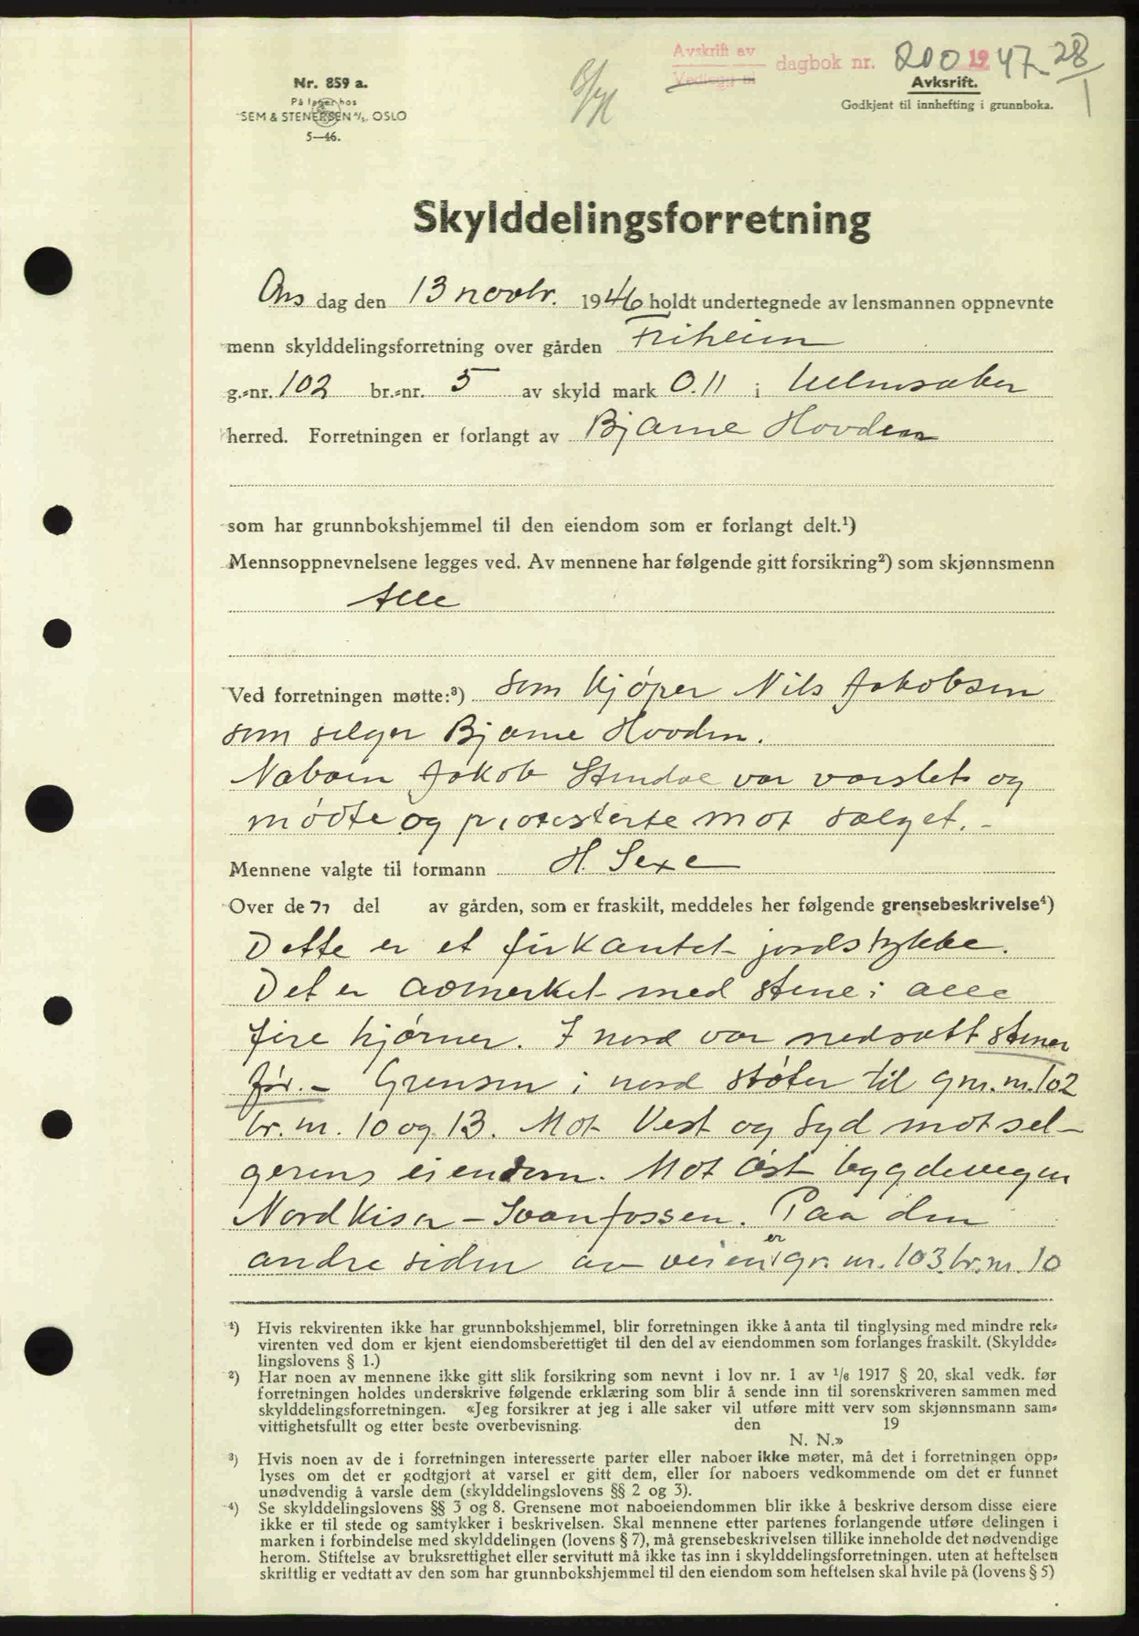 Avskrift av
Vedlegg til
dagbok nr. 200 1947 28/1
Nr. 859 a.
På lager hos
SEM & STENERSEN A/S, OSLO
5—46.
Avksrift.
Godkjent til innhefting i grunnboka.
Skylddelingsforretning
Ons dag den 13 novbr. 1946 holdt undertegnede av lensmannen oppnevnte
menn skylddelingsforretning over gården Friheim
g.-nr. 102 br.-nr. 5 av skyld mark 0.11 i Ullensaker
herred. Forretningen er forlangt av Bjarne Hovden
som har grunnbokshjemmel til den eiendom som er forlangt delt.¹)
Mennsoppnevnelsene legges ved. Av mennene har følgende gitt forsikring²) som skjønnsmenn
Alle
Ved forretningen møtte:³) som kjøper Nils Jakobsen
som selger Bjarne Hovden.
Naboen Jakob Stendal var varslet og
mødte og protesterte mot salget. -
Mennene valgte til formann H. Sexe
Over de n del av gården, som er fraskilt, meddeles her følgende grensebeskrivelse⁴)
Dette er et firkantet jordstykke.
Det er avmerket med stene i alle
fire hjørner. I nord var nedsatt stener
før. - Grensen i nord støter til gr. nr. 102
br. nr. 10 og 13. Mot Vest og Syd mot sel-
gerens eiendom. Mot Øst bygdevegen
Nordkisa - Svanfossen. Paa den
andre siden av veien er gr. nr. 103. br. nr. 10
¹) Hvis rekvirenten ikke har grunnbokshjemmel, blir forretningen ikke å anta til tinglysing med mindre rek-
virenten ved dom er kjent eiendomsberettiget til den del av eiendommen som forlanges fraskilt. (Skyldde-
lingslovens § 1.)
²) Har noen av mennene ikke gitt slik forsikring som nevnt i lov nr. 1 av 1/6 1917 § 20, skal vedk. før
forretningen holdes underskrive følgende erklæring som blir å sende inn til sorenskriveren sammen med
skylddelingsforretningen. «Jeg forsikrer at jeg i alle saker vil utføre mitt verv som skjønnsmann sam-
vittighetsfullt og etter beste overbevisning. den 19
N. N.»
³) Hvis noen av de i forretningen interesserte parter eller naboer ikke møter, må det i forretningen opp-
lyses om det er godtgjort at varsel er gitt dem, eller for naboers vedkommende om det er funnet
unødvendig å varsle dem (skylddelingslovens §§ 2 og 3).
⁴) Se skylddelingslovens §§ 3 og 8. Grensene mot naboeiendommen blir ikke å beskrive dersom disse eiere
ikke er til stede og samtykker i beskrivelsen. Skal mennene etter partenes forlangende utføre delingen i
marken i forbindelse med skylddelingen (lovens § 7), må grensebeskrivelsen tillike inneholde det nødvendige
herom. Stiftelse av bruksrettighet eller servitutt må ikke tas inn i skylddelingsforretningen, uten at heftelsen
skriftlig er vedtatt av den som har grunnbokshjemmel til den eiendom som heftelsen skal hvile på (lovens § 5)